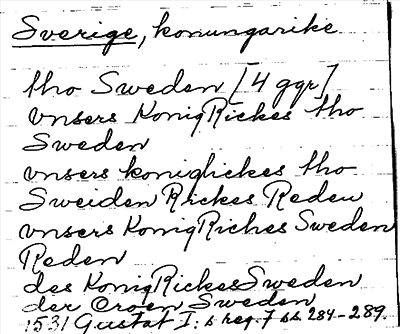 Sverige, konungarike
tho Sweden [4 ggr]
vnsers KonigRickes tho
Sweden
vnsers koniglickes tho
Sweiden Rickes Reden
vnsers KonigRiches Sweden
Reden
des KonigRickesSweden
der Croen Sweden
1531 Gustaf I. s reg. 7 ss. 284-289.